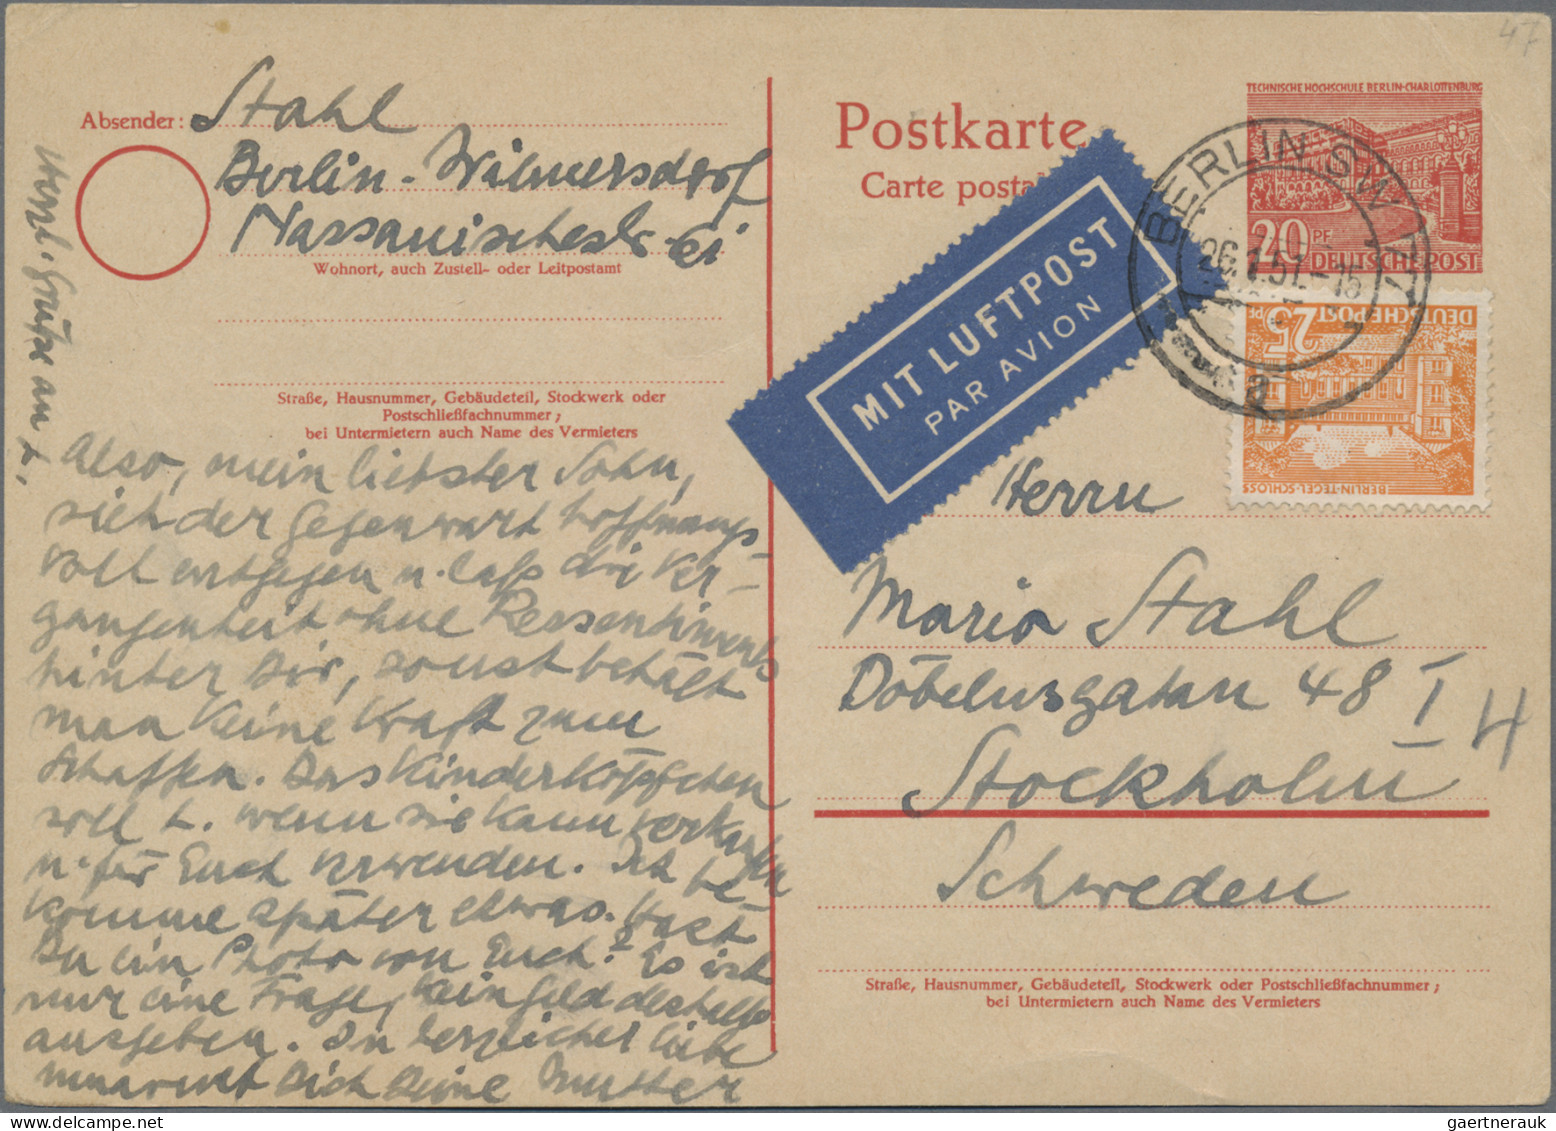 47
Absender: Stahl
Berlin-Wilmersdorf
Nassauischestr. 61
Wohnort, auch Zustell- oder Leitpostamt
Straße, Hausnummer, Gebäudeteil, Stockwerk oder
Postschließfachnummer;
bei Untermietern auch Name des Vermieters
Herzl. Grüße an L.
Also, mein liebster Sohn,
sieh der Gegenwart hoffnungs-
voll entgegen u. lass die Ver-
gangenheit ohne Ressentiments
hinter Dir, sonst behält
man keine Kraft zum
Schaffen. Das Kinderköpfchen
soll L. wenn sie kann verkaufen
u. für Euch verwenden. Ich be-
komme später etwas. Hast
Du ein Photo von Euch? Es ist
nur eine Frage, kein Geld deshalb
ausgeben. In herzlicher Liebe
umarmt Dich Deine Mutter
Postkarte
Carte posta
MIT LUFTPOST
PAR AVION
TECHNISCHE HOCHSCHULE BERLIN-CHARLOTTENBURG
20 PF
DEUTSCHE POST
BERLIN SW
26.1.51.-15
a
DEUTSCHE POST
25 PF
BERLIN-TEGEL-SCHLOSS
Herrn
Mario Stahl
Döbelnsgatan 48 I
4
Stockholm
Schweden
Straße, Hausnummer, Gebäudeteil, Stockwerk oder Postschließfachnummer;
bei Untermietern auch Name des Vermieters
gaertnerauk